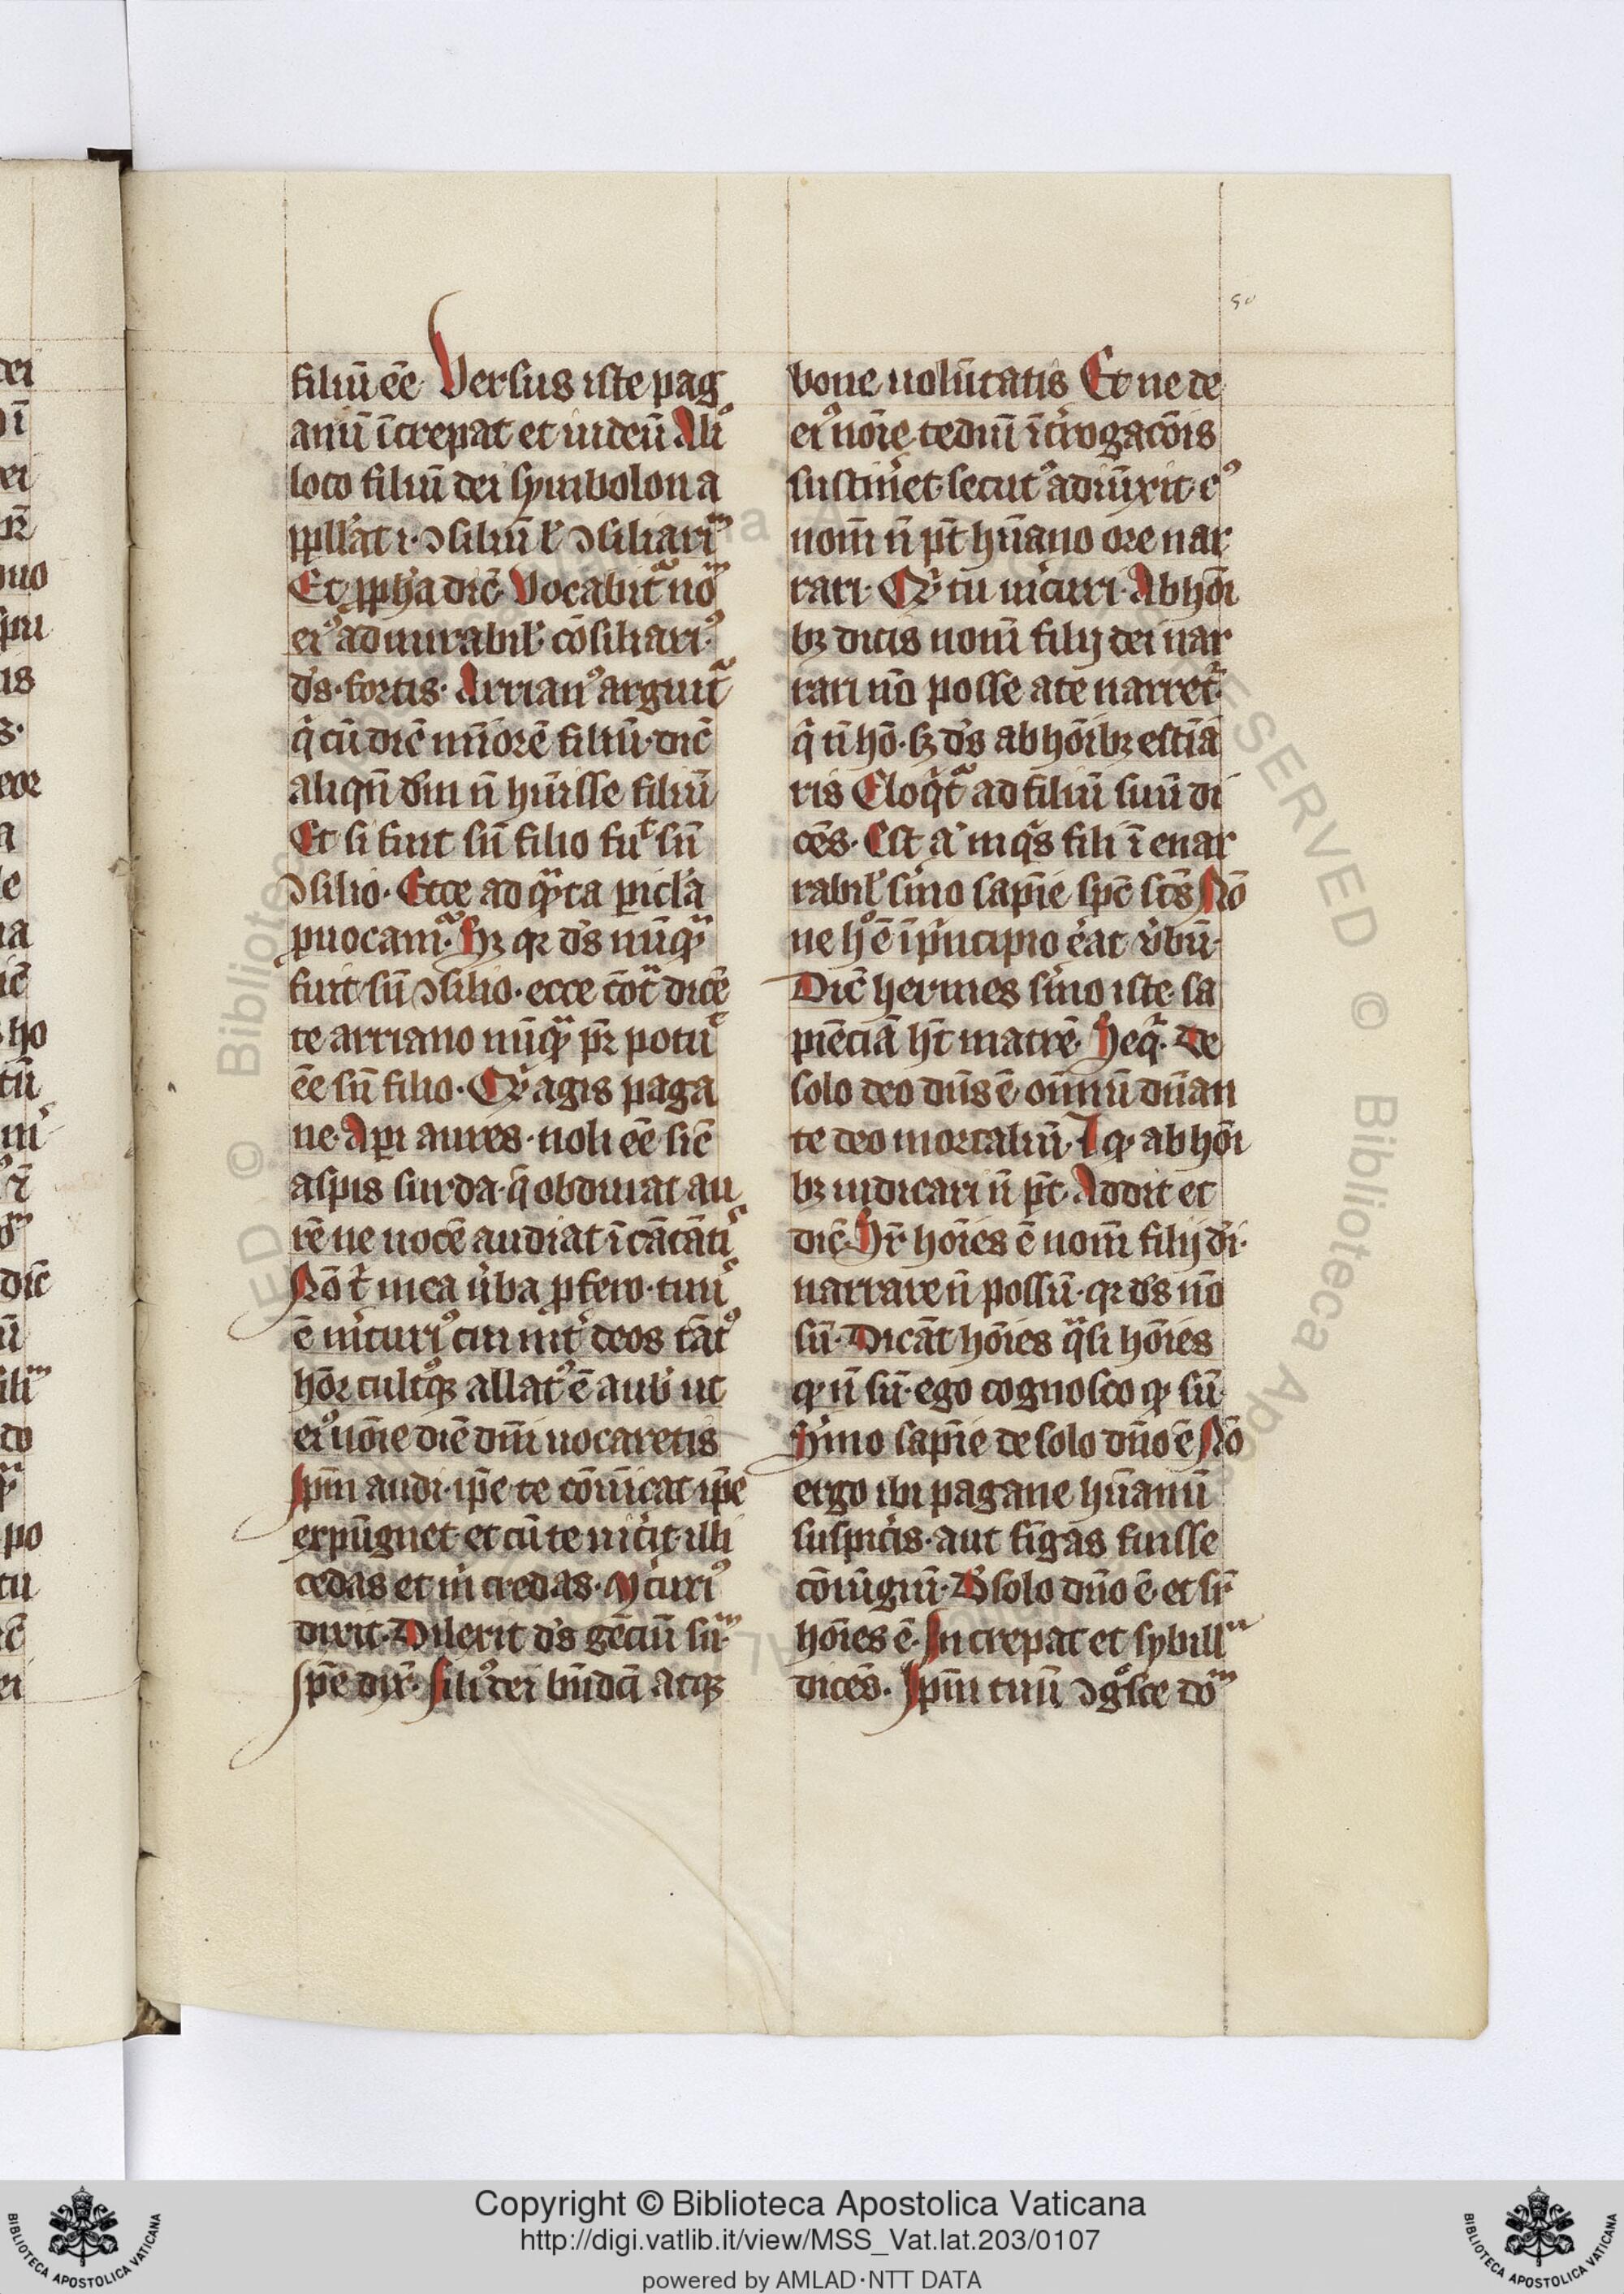 50
filiū ēe. Versus iste pag
anū īcrepat et iudeū Aliº
loco filiū dei symbolon a
ppll'at i. ɔsiliū l' ɔsiliariū
Et ppħa dic̄. Vocabit᷑ nom̄
eiꝰ admirabil'. cōsiliariꝰ.
ds̄. fortis. Arrianꝰ arguit᷑
q̄ cū dic̄ minorē filiū. dic̄
aliqn̄ dm̄ n̄ huisse filiū
Et si fuit sn̄ filio fuc̄ sn̄
ɔsilio. Ecce ad
puocam᷑. Sꝫ qꝛ ds̄ nūqᷓ
fuit sn̄ ɔsilio. ecce dicē
te arriano nūqᷓ pr̄ potuc̄
ēe sn̄ filio. Qͥ agis paga
ne. Aꝑi aures. noli ēe sic̄
aspis surda. q̄ obdurat au
rē ne uocē audiat īcātātis
Nō t̄ mea ūba ꝓfero. tuus
ē mcuriꝰ cui int̄ deos tātꝰ
hōꝛ cultꝰqꝫ allatꝰ ē a ut
eiꝰ nōie diē dn̄i uocaretis
Ipm̄ audi. ip̄e te cōuīcat ip̄e
expūgnet. et cū te uic̄it. illi
cedas et m credas. Mcuriꝰ
dixit. ds̄ gēciū
sp̄e dix̄. filiꝰ dei bn̄dc̄i atqꝫ
bone uolūtatis Et ne de
eiꝰ nōie tediū ītrogacōis
sustin̄et. secutꝰ adiūxit. cꝰ
nom̄ n̄ pt̄ hūano ore nar
rari. Qͥ tu mcuri. Ab hōi
bꝫ dicis nom̄ filij dei nar
rari nō posse a te narret᷑.
q̄ n̄ hō. sꝫ ds̄ ab hōibꝫ estīa
ris Eloqͥt᷑ ad filiū suū di
cēs. Est a' inqͥs fili īenar
rabil' smo sapīe spc̄ scs̄ Nō
ne hº ē ī pncipio erat ūbū.
Dic̄ hermes smo iste sa
piēciā ht̄ matrē. Seqͥ. De
solo deo dn̄s ē. oīniū dn̄an
te deo mortaliū. Iqꝫ ab hōi
bꝫ indicari n̄ pt̄. Addit et
dic̄. Sr̄ hoīes ē nom̄ filij dī.
narrare n̄ possū. qꝛ ds̄ nō
sū. Dicāt hoīes qᷓsi hoīes
qꝫ n̄ sū. ego cognosco qꝫ sū.
Smo sapīe de solo dn̄o ē Nō
ergo ibi pagane hūanū
suspic̄is. aut fīgas fuisse
cōiūgiū. D' solo dn̄o ē. et sr̄
hoīes ē. Increpat et sybillā
dicēs. Ipm̄ tuū ɔgºsce dom̄
Copyright © Biblioteca Apostolica Vaticana
http://digi.vatlib.it/view/MSS_Vat.lat.203/0107
powered by AMLAD·NTT DATA